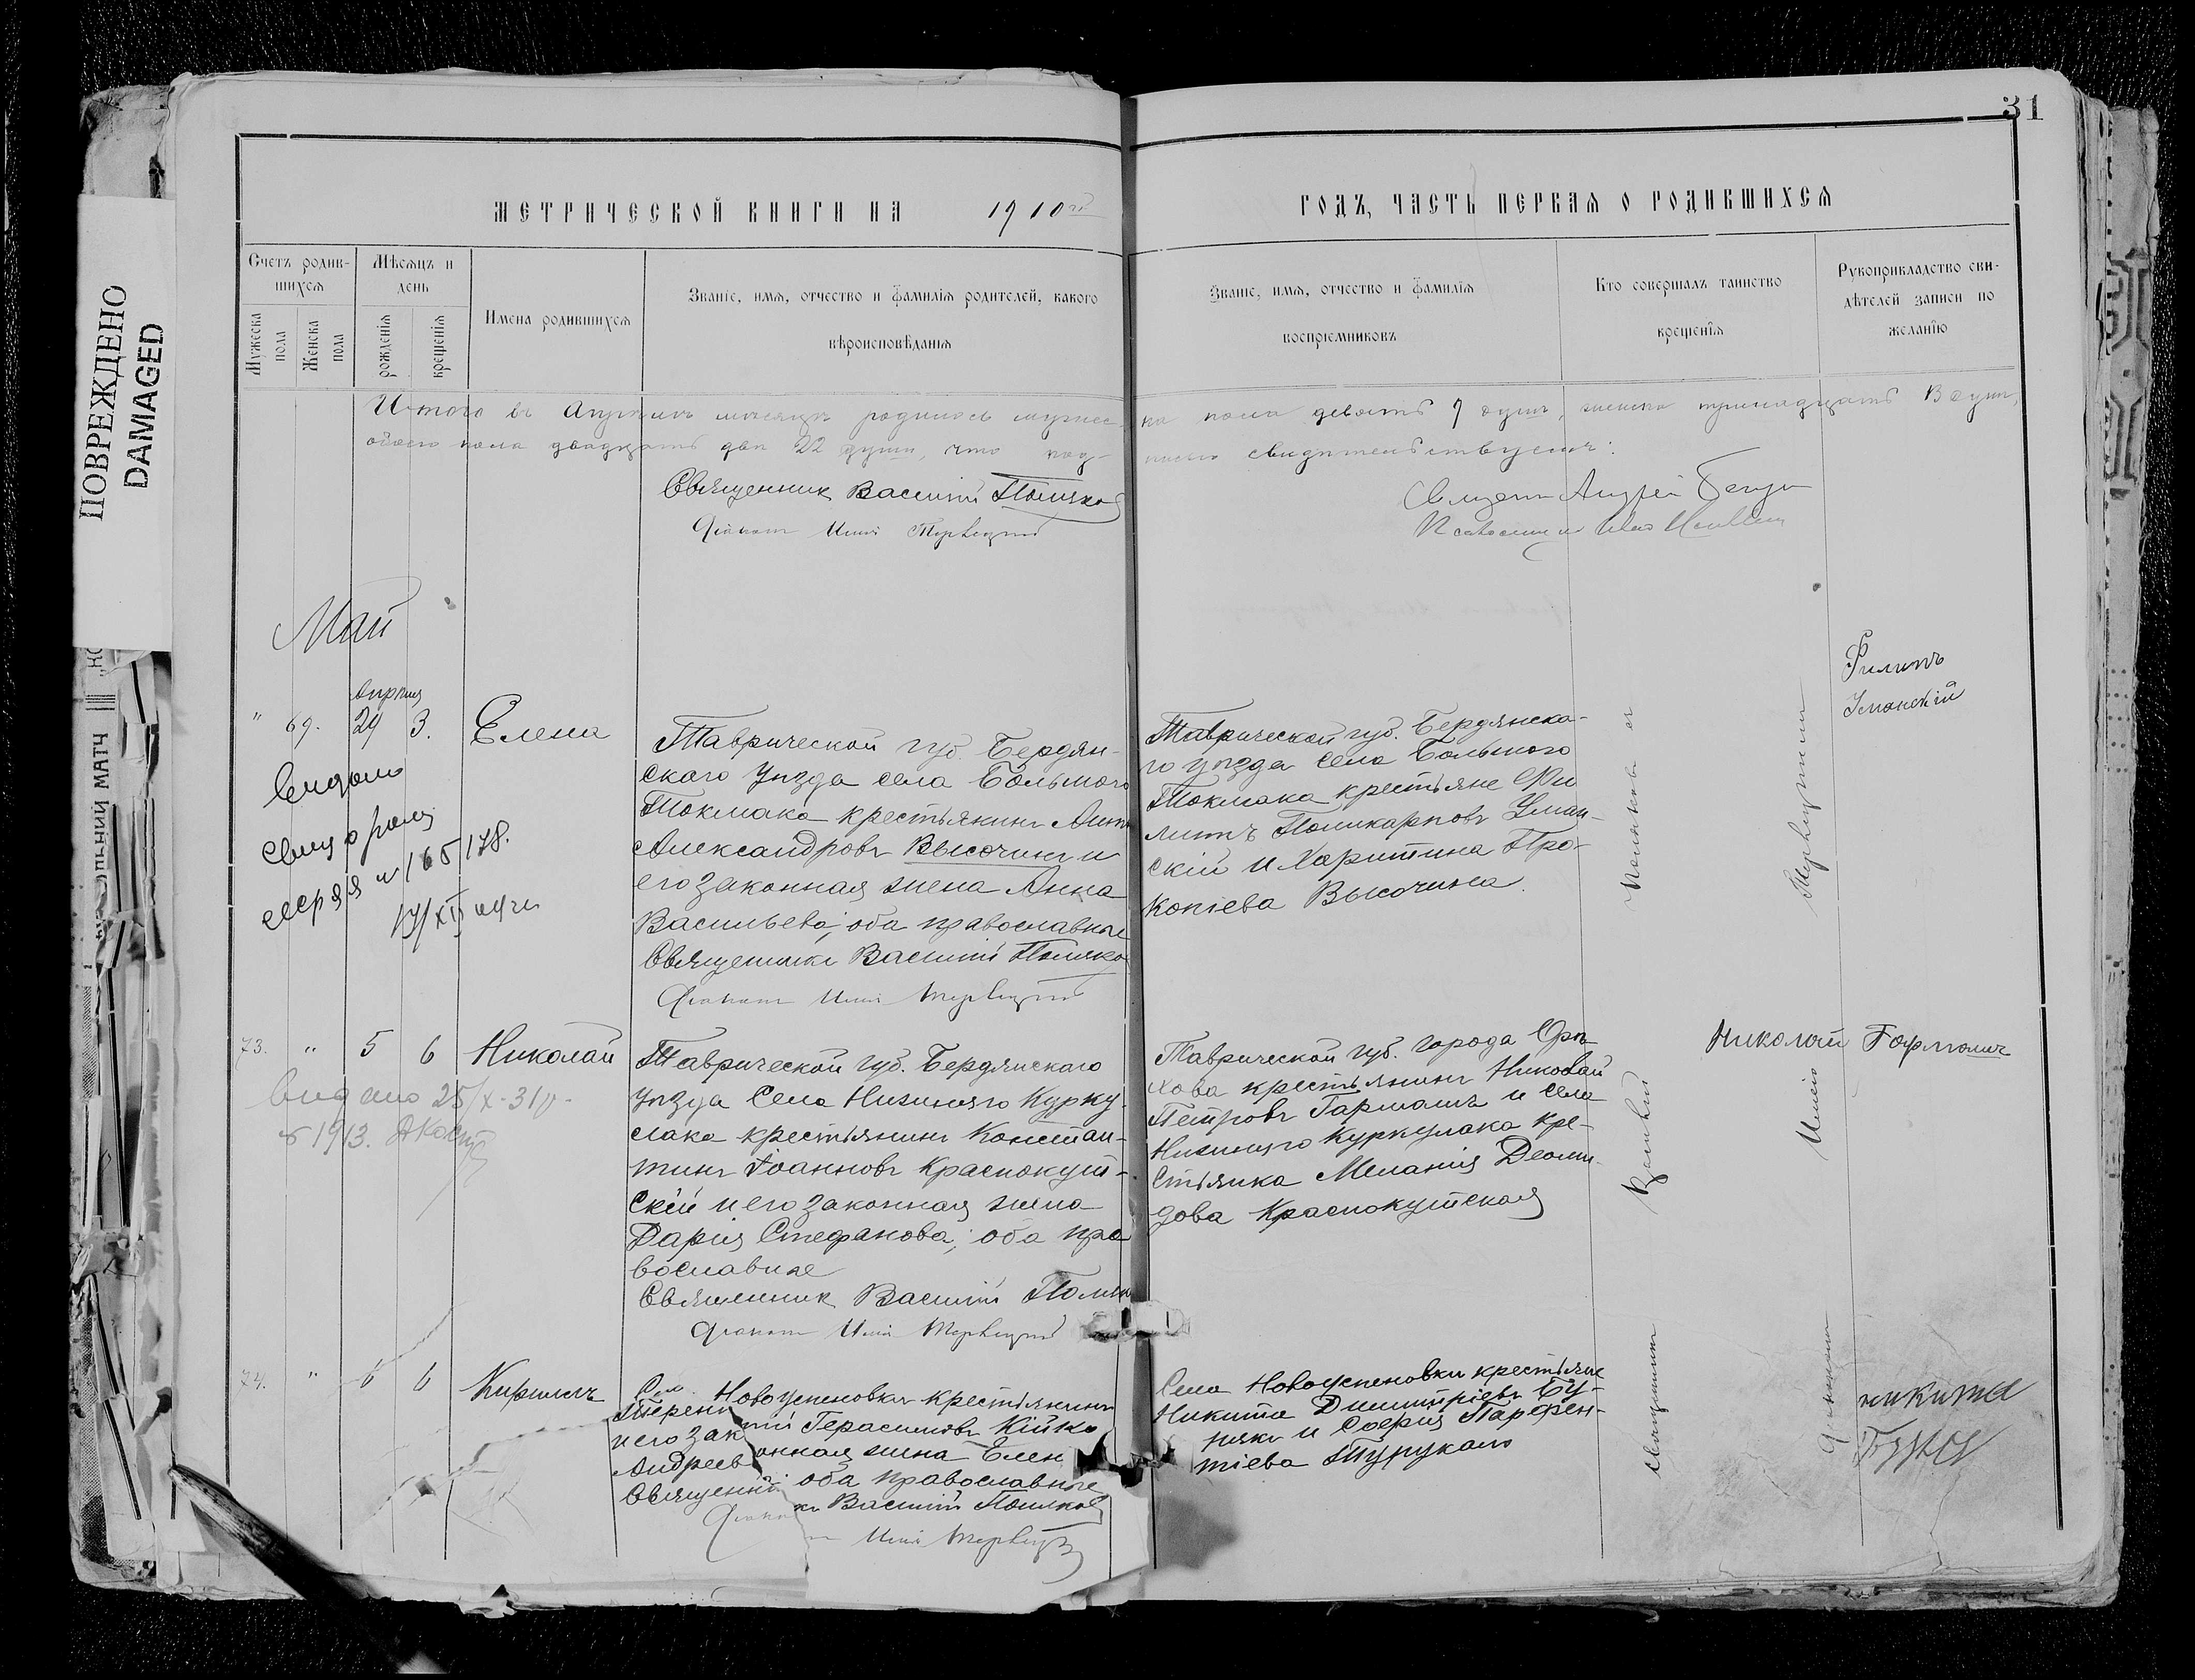 31
ПОВРЕЖДЕНО
DAMAGED
МЕТРИЧЕСКОЙ КНИГИ НА 1910й
ГОДЪ, ЧАСТЬ ПЕРВАЯ О РОДИВШИХСЯ
Счетъ родив-
шихся
Мужеска пола
Женска пола
Мѣсяцъ и
день
рожденія
крещенія
Имена родившихся
Званіе, имя, отчество и фамилія родителей, какого
вѣроисповѣданія
Званіе, имя, отчество и фамилія
воспріемниковъ
Кто совершалъ таинство
крещенія
Рукоприкладство сви-
дѣтелей записи по
желанію
Итого въ Апрѣлѣ мѣсяцѣ родилось мужес
ка пола девять 9 душъ, женска тринадцать 13 душъ,
обоего пола двадцать два 22 души, что под-
писью свидѣтельствуемъ:
Священник Василій Поляков
Діаконъ Илія
Андрей
Май
Апрѣля
" 69. 29 3. Елена
Таврической губ. Бердян-
скаго уѣзда села Большого
Токмака крестьянинъ
Александровъ Высочинъ и
его законная жена Анна
Васильева; оба православные
Священникъ Василій Поляков
Діаконъ Илія
Таврической губ. Бердянска-
го уѣзда села Большого
Токмака крестьяне Фи
липпъ Поликарповъ Уман-
скій и Харитина Про-
копіева Высочина.
Филипъ
Уманскій
Видано
свид о рожд
серія № 165178.
73. " 5 6 Николай
Видано 25/X-31р.
№ 1913.
Таврической губ. Бердянскаго
уѣзда Села Нижняго Курку
лака крестьянинъ Констан-
тинъ Іоанновъ Краснокут-
скій и его законная жена
Дарія Стефанова; оба пра
вославные
Священник Василій Поляк
Діаконъ Илія
Таврической губ. города Орѣ
хова крестьянинъ Николай
Петровъ Гармашъ и села
Нижняго Куркулака кре-
стьянка Меланія Деоми
дова Краснокутская
Николай Гармашъ
74. " 6 6 Кириллъ
Села Новоуспеновки крестьянинъ
Терентій Герасимовъ Кійко
и его законная жена Елен
Андреев оба православные
Священникъ Василій Поляков
Діаконъ Илія
Села Новоуспеновки крестьяне
Никита Димитріевъ Бу-
някъ и Софія Парфен-
тіева
никита
Священникъ
Василій
Поляковъ
Діаконъ
Илія